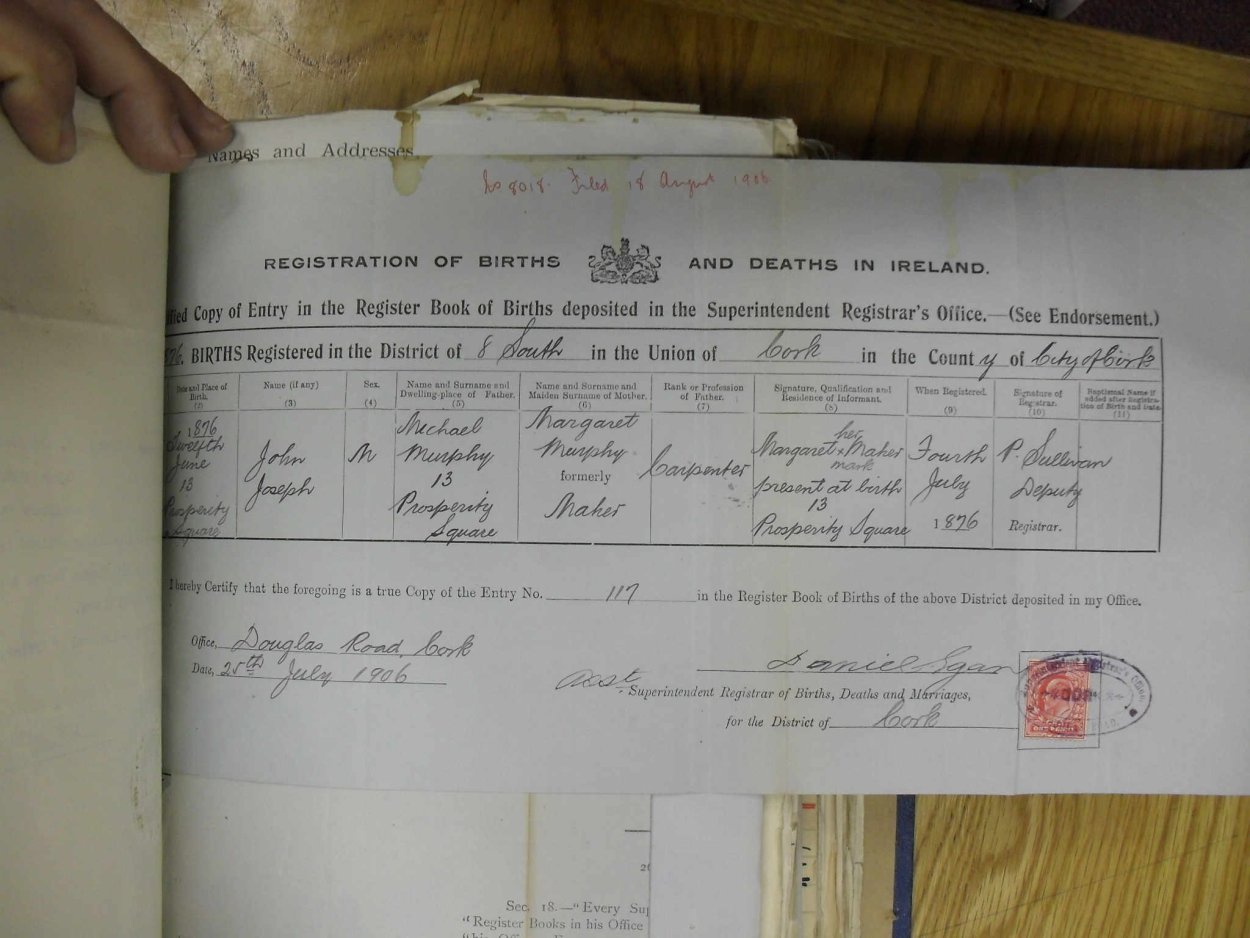 Names and Addresses
No 8018. Filed 18 August 1906
REGISTRATION OF BIRTHS AND DEATHS IN IRELAND.
fied Copy of Entry in the Register Book of Births deposited in the Superintendent Registrar's Office.—(See Endorsement.)
876. BIRTHS Registered in the District of 8 South in the Union of Cork in the County of City of Cork
Date and Place of Birth. (2)
Name (if any) (3)
Sex. (4)
Name and Surname and Dwelling-place of Father. (5)
Name and Surname and Maiden Surname of Mother. (6)
Rank or Profession of Father. (7)
Signature, Qualification and Residence of Informant. (8)
When Registered. (9)
Signature of Registrar. (10)
Baptismal Name if added after Registration of Birth and Date. (11)
1876
Twelfth
June
13
Prosperity
Square
John
Joseph
M
Michael
Murphy
13
Prosperity
Square
Margaret
Murphy
formerly
Maher
Carpenter
her
Margaret x Maher
mark
present at birth
13
Prosperity Square
Fourth
July
1876
P. Sullivan
Deputy
Registrar.
I hereby Certify that the foregoing is a true Copy of the Entry No. 117 in the Register Book of Births of the above District deposited in my Office.
Office, Douglas Road, Cork
Date, 25th July 1906
Daniel Egan
Asst. Superintendent Registrar of Births, Deaths and Marriages,
for the District of Cork
ONE PENNY
Sec. 18.—"Every Sup
"Register Books in his Office